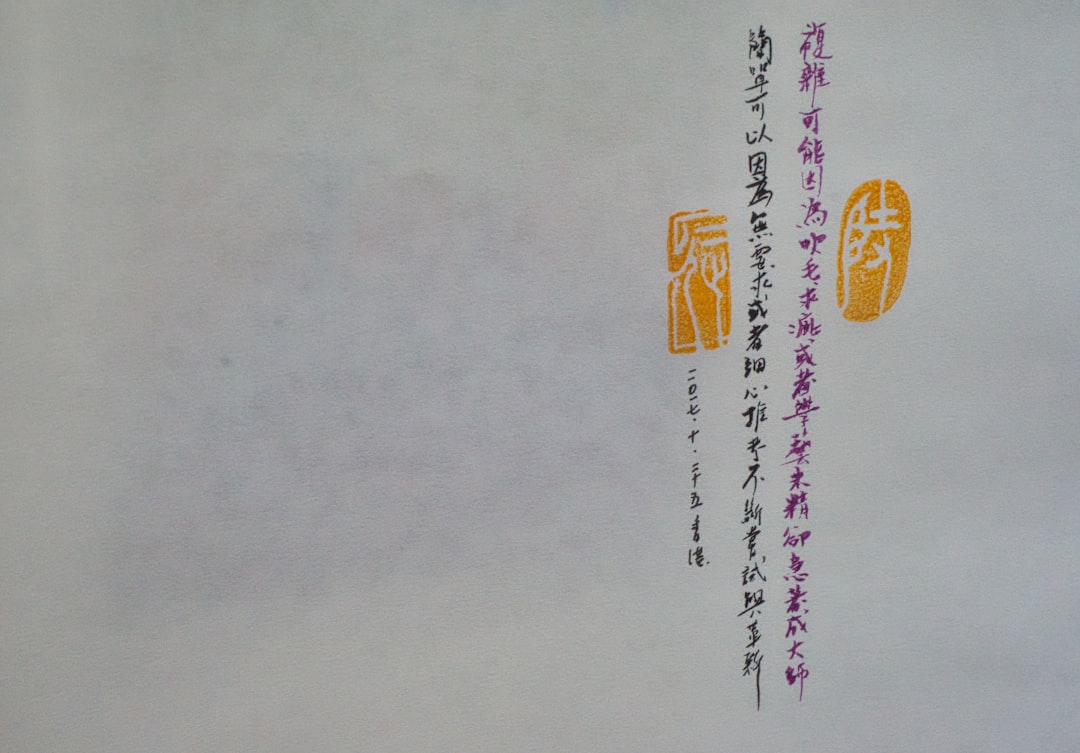 複雜可能因為吹毛求疵或者學藝未精卻急著成大師
簡單可以因為無要求或者細心推考不斷嘗試與革新
二〇一七·十·二十五香港